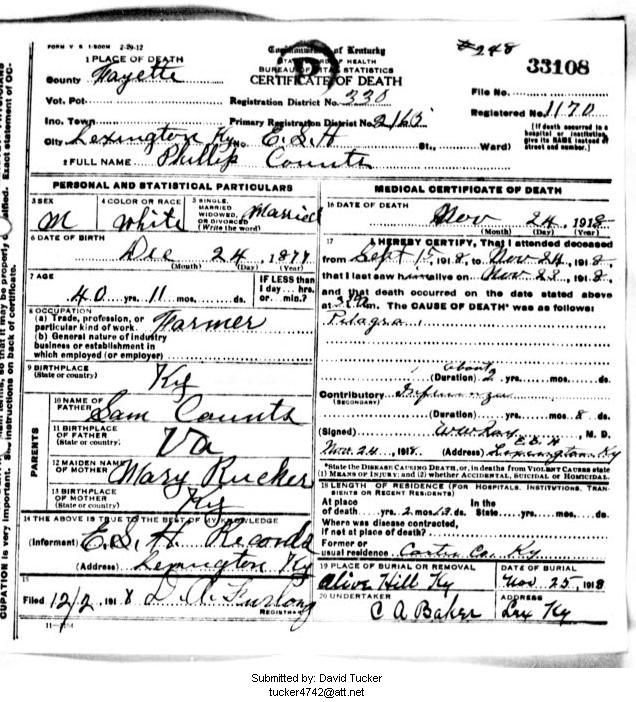 FORM V S 1-500M 2-29-12
Commonwealth of Kentucky
#248
1 PLACE OF DEATH
STATE BOARD OF HEALTH
BUREAU OF VITAL STATISTICS
33108
County Fayette
CERTIFICATE OF DEATH
File No.
Vot. Pct. Registration District No. 330
Registered No. 1170
Inc. Town Primary Registration District No. 2165
[If death occurred in a hospital or institution, give its NAME instead of street and number.]
City Lexington Ky No. E.S.H St., Ward)
2 FULL NAME Phillip Counts
PERSONAL AND STATISTICAL PARTICULARS
3 SEX M
4 COLOR OR RACE White
5 SINGLE, MARRIED WIDOWED, OR DIVORCED (Write the word) Married
6 DATE OF BIRTH
Dec 24, 187
(Month) (Day) (Year)
7 AGE
40 yrs. 11 mos. ds.
IF LESS than 1 day hrs. or min.?
8 OCCUPATION
(a) Trade, profession, or particular kind of work. Farmer
(b) General nature of industry business or establishment in which employed (or employer)
9 BIRTHPLACE (State or country) Ky
PARENTS
10 NAME OF FATHER Sam Counts
11 BIRTHPLACE OF FATHER (State or country) Va
12 MAIDEN NAME OF MOTHER Mary Rucker
13 BIRTHPLACE OF MOTHER (State or country) Ky
14 THE ABOVE IS TRUE TO THE BEST OF MY KNOWLEDGE
(Informant) E.S.H Records
(Address) Lexington Ky
15
Filed 12/2, 1918 D. A. Furlong
REGISTRAR
MEDICAL CERTIFICATE OF DEATH
16 DATE OF DEATH
Nov 24, 1918
(Month) (Day) (Year)
17 I HEREBY CERTIFY, That I attended deceased
from Sept 15, 1918, to Nov 24, 1918,
that I last saw him alive on Nov 23, 1918,
and that death occurred on the date stated above
The CAUSE OF DEATH* was as follows:
Pelagra
about
(Duration) 2 yrs. mos. ds.
Contributory Influenza
(SECONDARY)
(Duration) yrs. mos. 8 ds.
(Signed) W W Ray, M. D.
E.S.H
Nov. 24, 1918. (Address) Lexington, Ky
*State the DISEASE CAUSING DEATH, or, in deaths from VIOLENT CAUSES state (1) MEANS OF INJURY; and (2) whether ACCIDENTAL, SUICIDAL or HOMICIDAL.
18 LENGTH OF RESIDENCE (FOR HOSPITALS, INSTITUTIONS, TRANSIENTS OR RECENT RESIDENTS)
At place of death yrs. 2 mos. 13 ds. In the State yrs. mos. ds.
Where was disease contracted, if not at place of death?
Former or usual residence Carter Co. Ky
19 PLACE OF BURIAL OR REMOVAL
Olive Hill Ky
DATE OF BURIAL
Nov. 25, 1918
20 UNDERTAKER
C A Baker
ADDRESS
Lex Ky
Submitted by: David Tucker
tucker4742@att.net